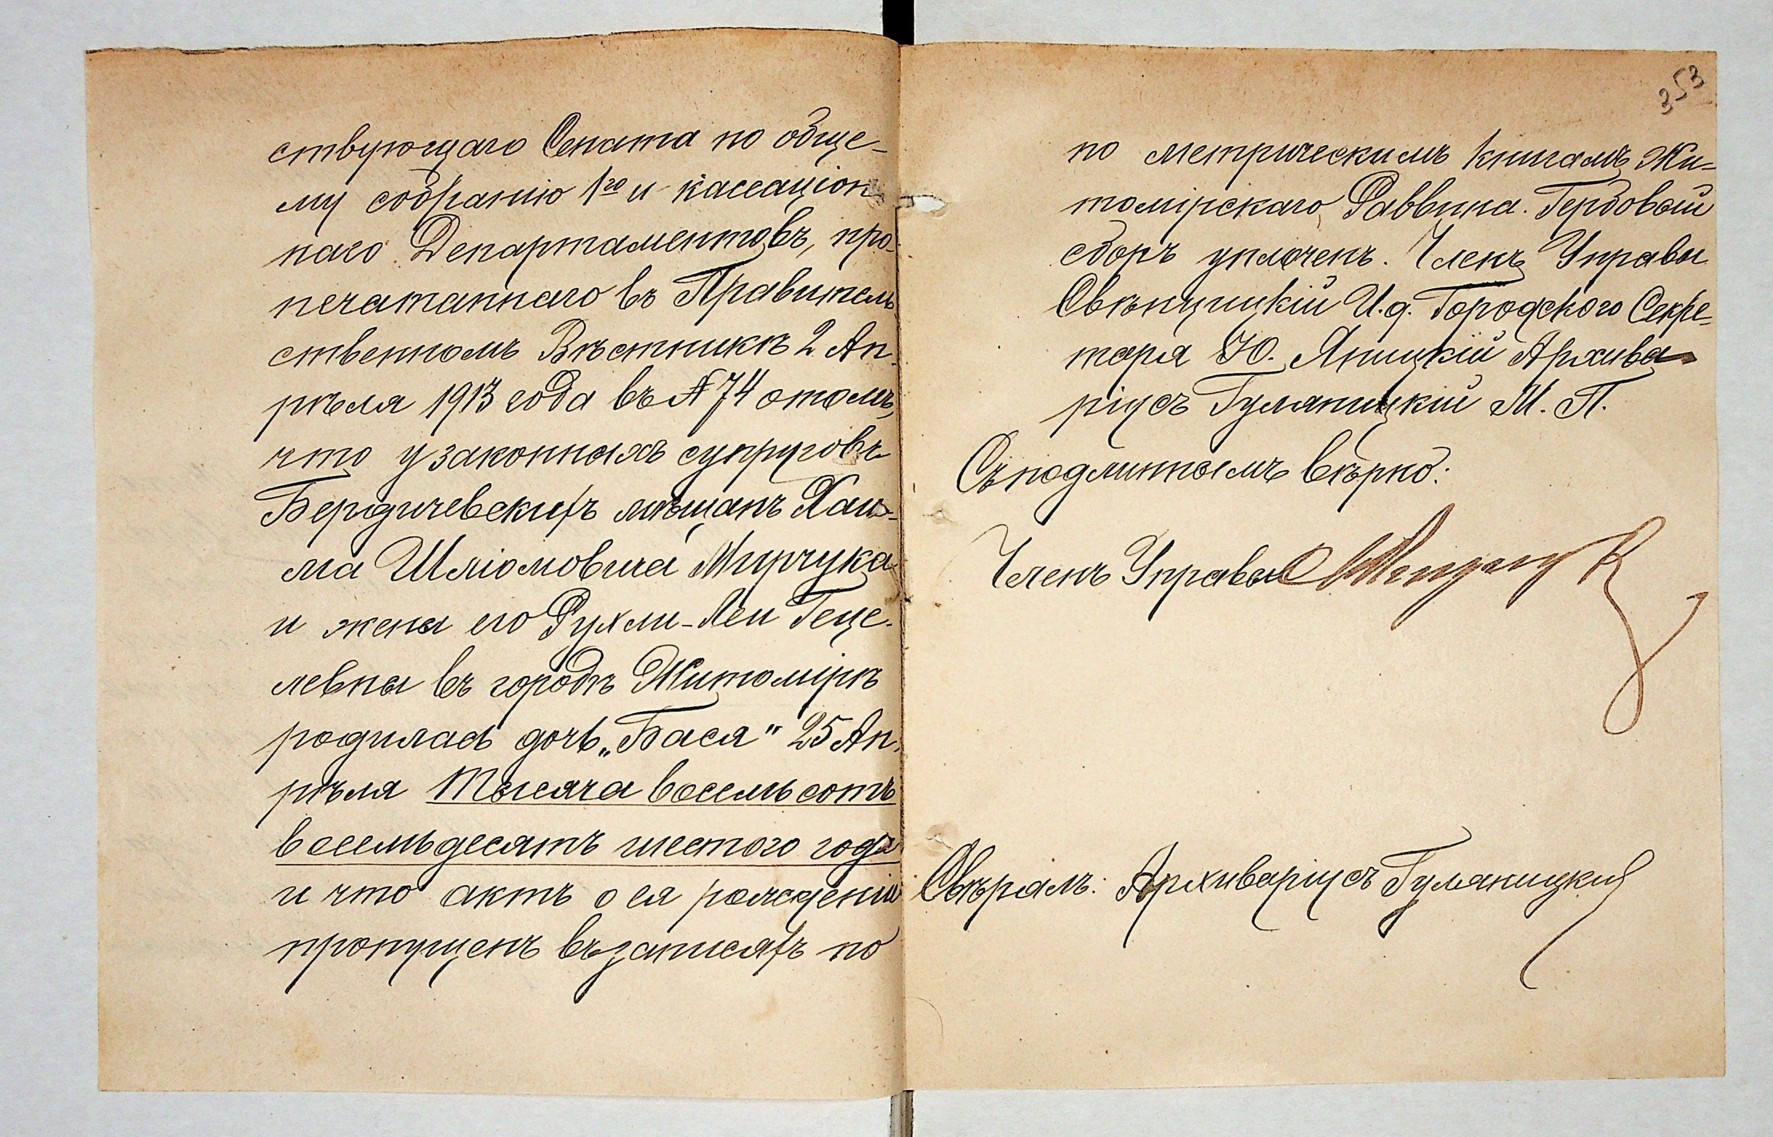 ствующаго Сената по обще-
му собранію 1го и кассаціон
наго Департаментовъ, про-
печатаннаго въ Правитель
ственномъ Вѣстникѣ 2 Ап
рѣля 1913 года въ № 74 о томъ,
что у законныхъ супруговъ
Бердичевскихъ мѣщанъ Хаи-
ма Шліомовича Мирчука
и жены его Рухли-Леи Геце-
левны въ городѣ Житомірѣ
родилась дочь „Бася" 25 Ап
рѣля Тысяча восемь сотъ
восемьдесятъ шестого года
и что актъ о ея рожденіи
пропущенъ въ записяхъ по
353
по метрическимъ книгамъ Жи-
томірскаго Раввина. Гербовый
сборъ уплоченъ. Членъ Управы
Свѣнцицкій И.д. Городского Секре-
таря Ю. Яницкій Архива-
ріусъ Гуляницкій М. П.
Съ подлиннымъ вѣрно:
Членъ Управы
Свѣрялъ: Архиваріусъ Гуляницкій